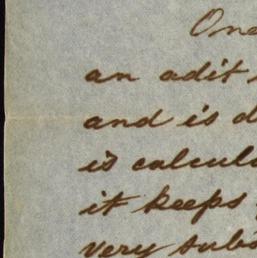 One
an adit
and is d
is calcula
it keeps
very subs